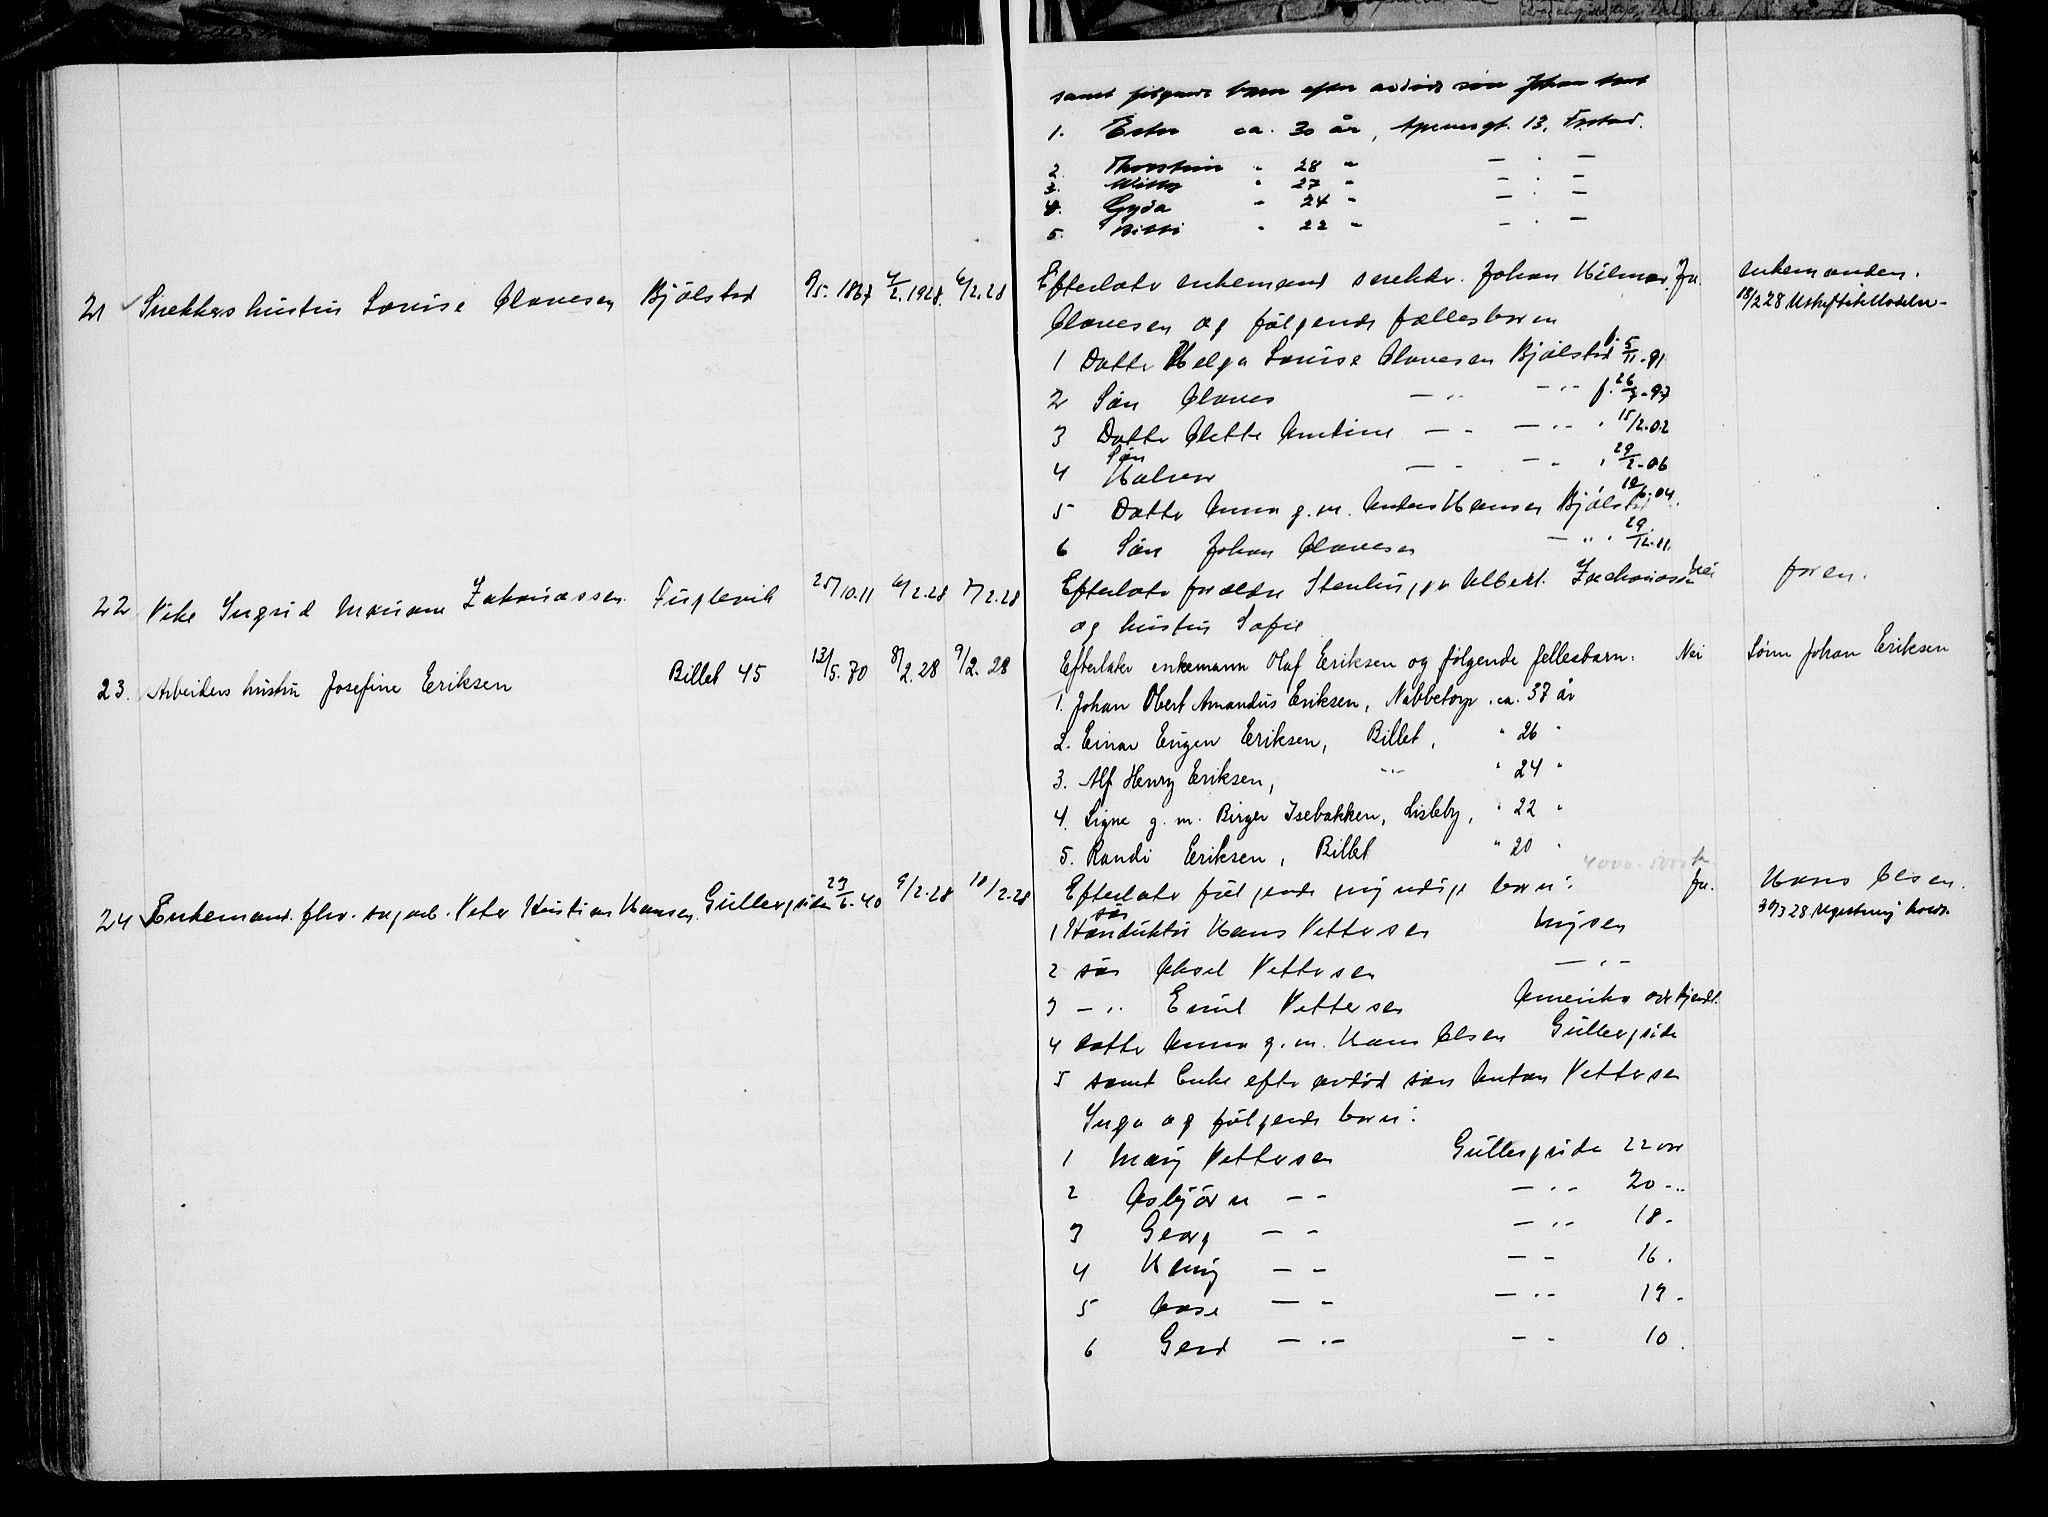 samt følgende barn efter avdøde søn Johan
1. Ester ca. 30 år, 13, Frstad.
2 Thorstein " 28 " — " —
3. Willy " 27 " — " —
4. Gyda " 24 " — " —
5. " 22 " — " —
21 Snekkers hustru Lovise Olavesen Bjølstad 9/5. 1867 4/2. 1928. 6/2.28 Efterlater enkemand snekker Johan Hilmar Ja. enkemanden.
Olavesen og følgende fællesbarn 18/2 28 Uskifteattest
1 Datter Helga Lovise Olavesen Bjølstad f. 5/11-91
2 Søn Olaves — " — " f. 26/7-97
3 Datter Olette Antine — " — " " 15/2.02
4 Søn Halvor — " — " " 29/2-06
5 Datter Anna g.m. Anders Hansen Bjølstad 04.
6 Søn Johan Olavesen — " " 29/12.11.
22 Pike Ingrid Mariane Zakariassen Fuglevik 25/10.11 6/2.28 7/2.28 Efterlater forældre Stenhugger Albert Zachariassen Nei faren.
og hustru Sofie
23. Arbeiders hustru Josefine Eriksen Billet 45 13/5.70 8/2.28 9/2.28 Efterlater enkemann Olaf Eriksen og følgende fellesbarn: Nei Sønn Johan Eriksen
1. Johan Obert Amandus Eriksen, Nabbetorp, ca. 37 år
2. Einar Eugen Eriksen, Billet, " 26 "
3. Alf Henry Eriksen, — " — " 24 "
4. Signe g. m. Birger Isebakken, Lisleby, " 22 "
5. Randi Eriksen, Billet " 20 "
4000-5000 kr.
24 Enkemand. fhv. sagarb. Peter Kristian Hansen Gullergsiden 40 9/2-28 10/2-28 Efterlater følgende myndige barn: Ja. Hans Olsen.
1 søn Konduktør Hans Pettersen Mysen 30/3 28
2 søn Aksel Pettersen — " —
3 — " Emil Pettersen Amerika
4 datter Anna g. m. Hans Olsen Gullergside
5 samt Enke efter avdød søn Anton Pettersen
Inga og følgende barn:
1 Mary Pettersen Gullergside 22 år
2 Asbjørn — " — " — 20 - "
3 Georg — " — " — 18 -
4 Henry — " — " 16.
5 Aase — " — " — 13 -
6 Gerd — " — — " 10.